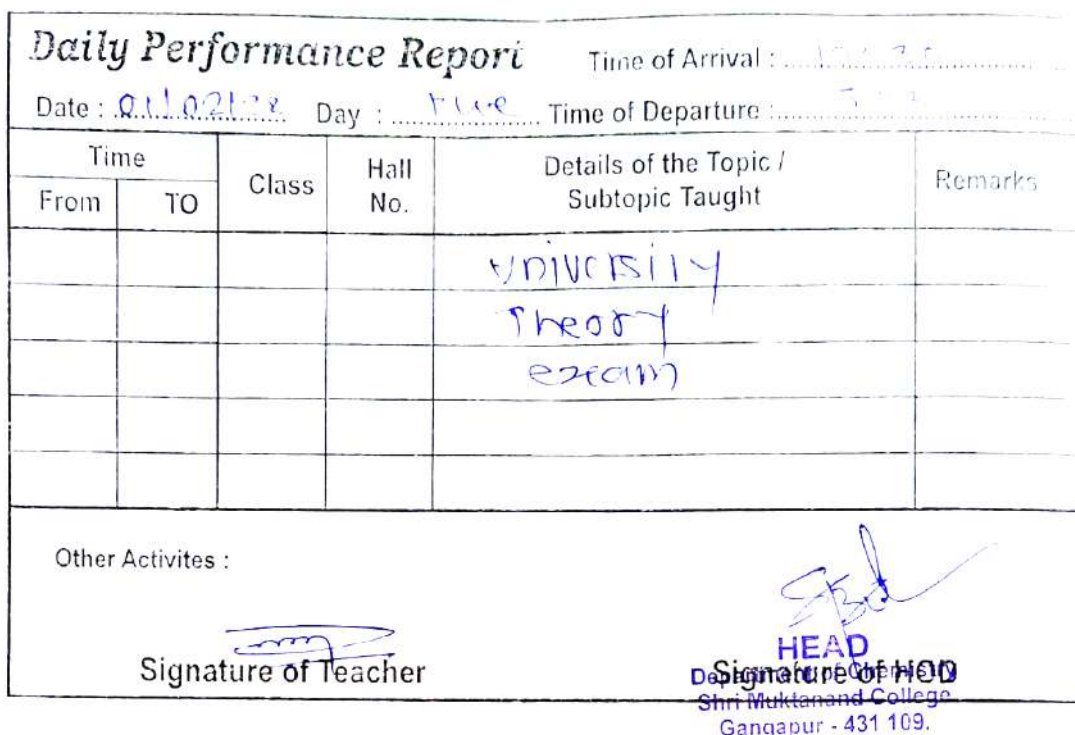 Daily Performance Report
Time of Arrival :
Date : 01/02/22 Day : Tue Time of Departure :
Time
From TO Class Hall No. Details of the Topic / Subtopic Taught Remarks
University
Theory
exam
Other Activites :
Signature of Teacher
Signature of HOD
HEAD
Department of Chemistry
Shri Muktanand College
Gangapur - 431 109.